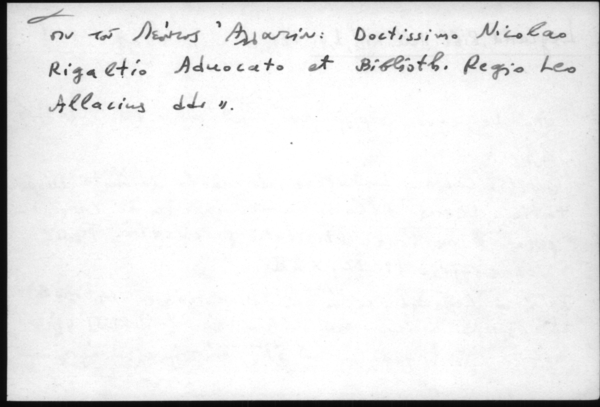 ση τοῦ Λέοντος Ἀλλατίου: Doctissimo Nicolao
Rigaltio Advocato et Biblioth. Regio Leo
Allacius dd ».